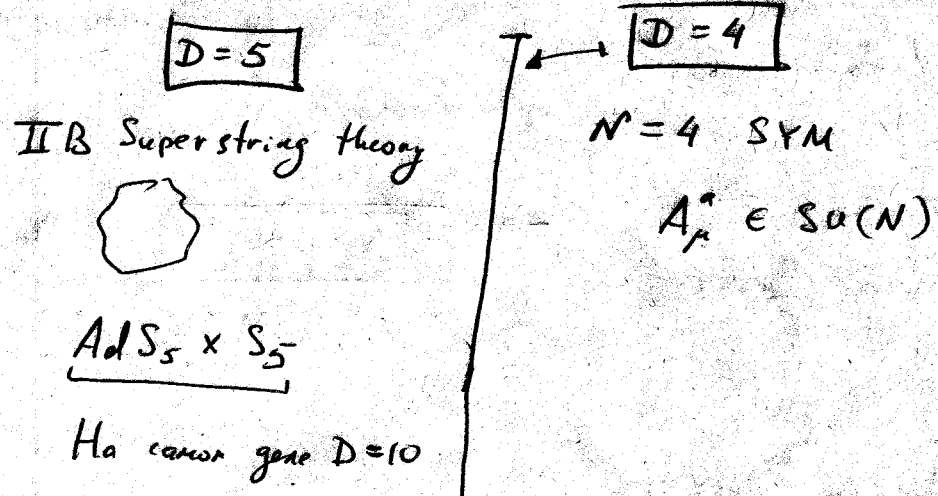 D = 5
IIB Superstring theory
AdS₅ × S₅
На самом деле D=10
D = 4
N = 4 SYM
Aᵃ_μ ∈ SU(N)